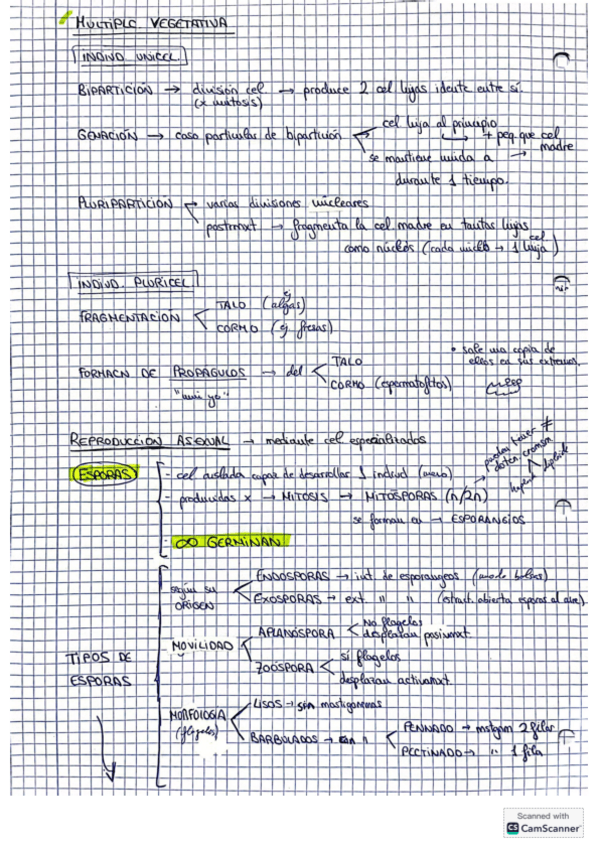 MULTIPLC VEGETATIVA
INDIVID UNICEL.
BIPARTICIÓN → división cel → produce 2 cel hijas idente entre sí.
(x mitosis)
GEMACIÓN → caso particular de bipartición
cel hija al principio → + peq que cel madre
se mantiene unida a → durante 1 tiempo.
PLURIPARTICIÓN
varias divisiones nucleares
postrmxt → fragmenta la cel madre en tantas hijas
como núcleos (cada núcleo → 1 cel hija)
INDIVID. PLURICEL
FRAGMENTACIÓN
TALO (ej algas)
CORMO (ej fresas)
FORMACN DE PROPÁGULOS → del
"mini yo"
TALO
CORMO (espermatofitos)
• sale una copia de
ellos en sus extremos.
REPRODUCCIÓN ASEXUAL → mediante cel especializadas
ESPORAS
- cel aislada capaz de desarrollar 1 individ (nuevo)
- producidas x → MITOSIS → MITÓSPORAS (n/2n)
pueden tener ≠
doten cromsm
haploid diploide
se forman en → ESPORANGIOS
- ∞ GERMINAN
TIPOS DE
ESPORAS
según su
ORIGEN
ENDOSPORAS → int de esporangeos (modo bolsas)
EXOSPORAS → ext " " (estruct. abierta esporas al aire)
MOVILIDAD
APLANÓSPORA
No flagelos
desplazan pasivmxt.
ZOÓSPORA
sí flagelos
desplazan activamxt.
MORFOLOGÍA
(flagelos)
LISOS → sin mastigonemas
BARBULADOS → con "
PENNADO → mstgnm 2 filas
PECTINADO → " 1 fila
Scanned with
CS CamScanner